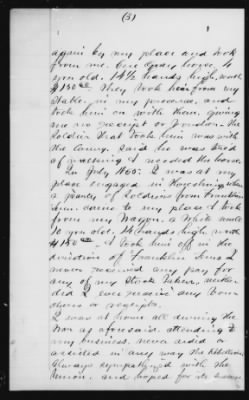 (3)
again by my place and took
from me. One Gray horse, 4
yrs old. 14½ hands high, worth
$150.00. They took him from my
Stable, in my presence, and
took him on with them, giving
me no receipt or Voucher. The
Soldier that took him was with
the Army. Said he was tired
of walking & needed the horse
In July 1865. I was at my
place engaged in threshing, when
a party of Soldiers from Franklin
Tenn. came to my place & took
from my Wagon, a White mule
10 yrs old. 14 hands high worth
$150.00. & took him off in the
direction of Franklin Tenn. I
never received any pay for
any of my Stock taken, neither
did I ever receive any Vou-
chers or receipts.
I was at home all during the
War as aforesaid, attending to
my business, never aided or
assisted in any way the Rebellion,
Always sympathized with the
Union. and hoped for its success